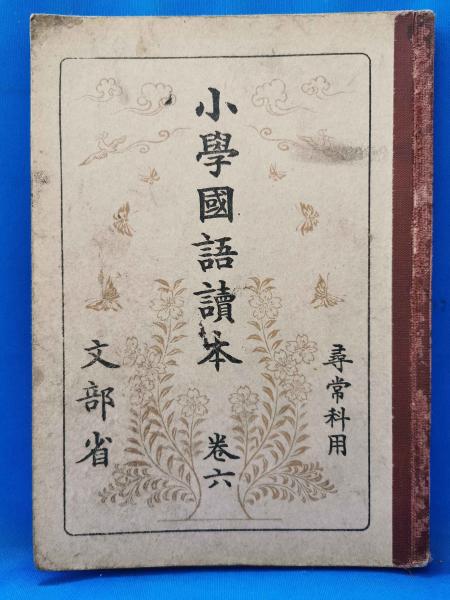 尋常科用
小學國語讀本
卷六
文部省